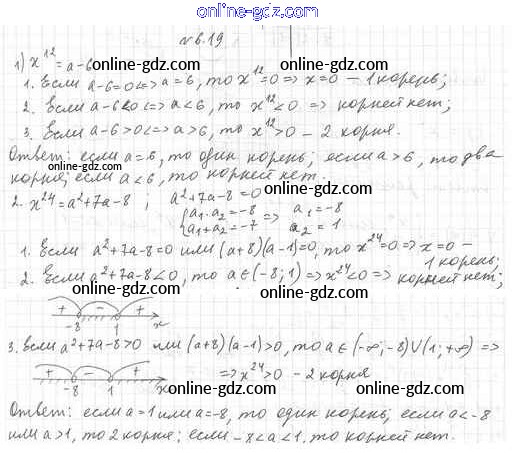 №6.19
1) x¹² = a-6 online-gdz.com
1. Если a-6=0 <=> a=6, то x¹²=0 => x=0 - 1 корень;
2. Если a-6<0 <=> a<6, то x¹²<0 => корней нет;
3. Если a-6>0 <=> a>6, то x¹²>0 - 2 корня.
Ответ: если a=6, то один корень; если a>6, то два
корня; если a<6, то корней нет.
2. x²⁴=a²+7a-8; a²+7a-8=0
{a₁·a₂=-8 a₁+a₂=-7 => a₁=-8 a₂=1
1. Если a²+7a-8=0 или (a+8)(a-1)=0, то x²⁴=0 => x=0 -
1 корень;
2. Если a²+7a-8<0, то a∈(-8;1) => x²⁴<0 => корней нет;
+ - +
-8 1 x
3. Если a²+7a-8>0 или (a+8)(a-1)>0, то a∈(-∞;-8)∪(1;+∞) =>
=> x²⁴>0 - 2 корня
+ - +
-8 1 x
Ответ: если a=1 или a=-8, то один корень; если a<-8
или a>1, то 2 корня; если -8<a<1, то корней нет.
online-gdz.com
online-gdz.com
online-gdz.com
online-gdz.com
online-gdz.com
online-gdz.com
online-gdz.com
online-gdz.com
online-gdz.com
online-gdz.com
online-gdz.com
online-gdz.com
online-gdz.com